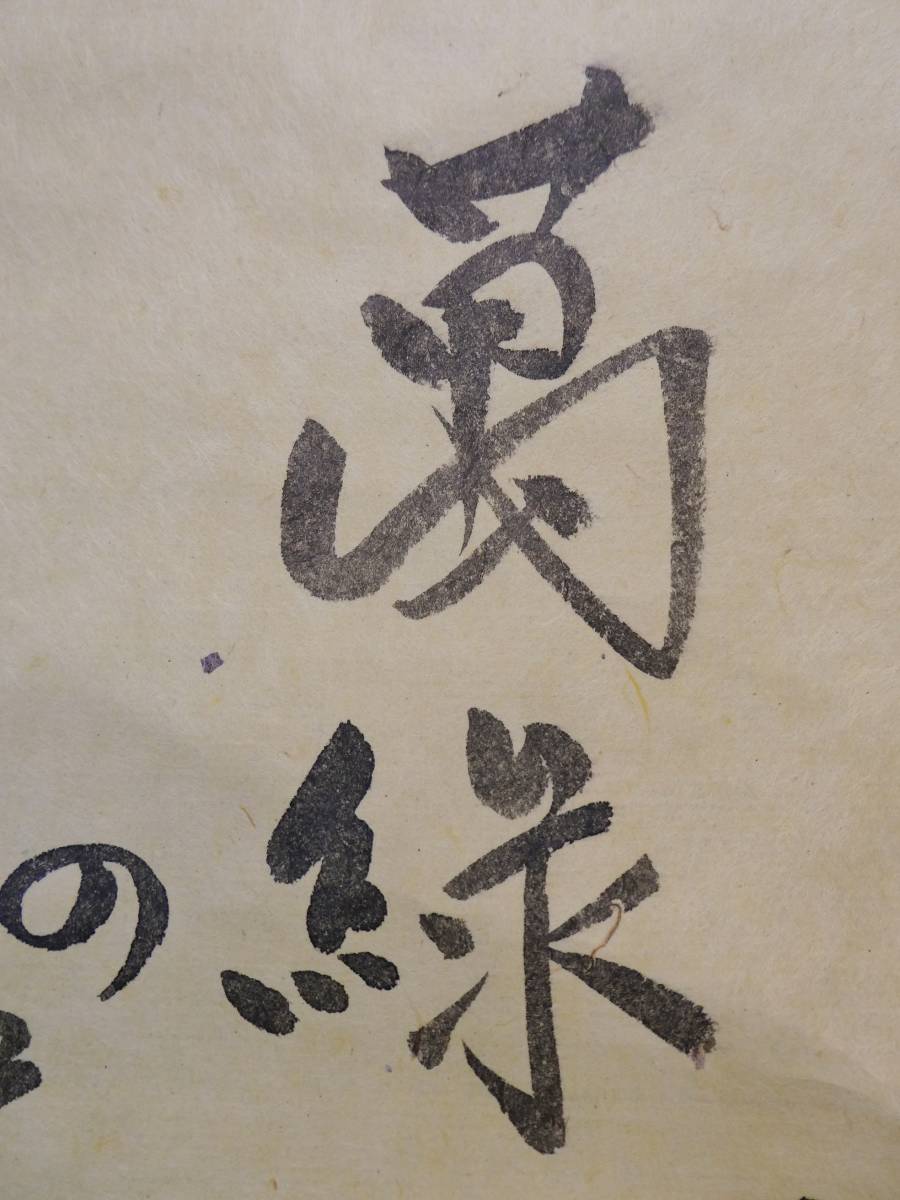 萬緑
の